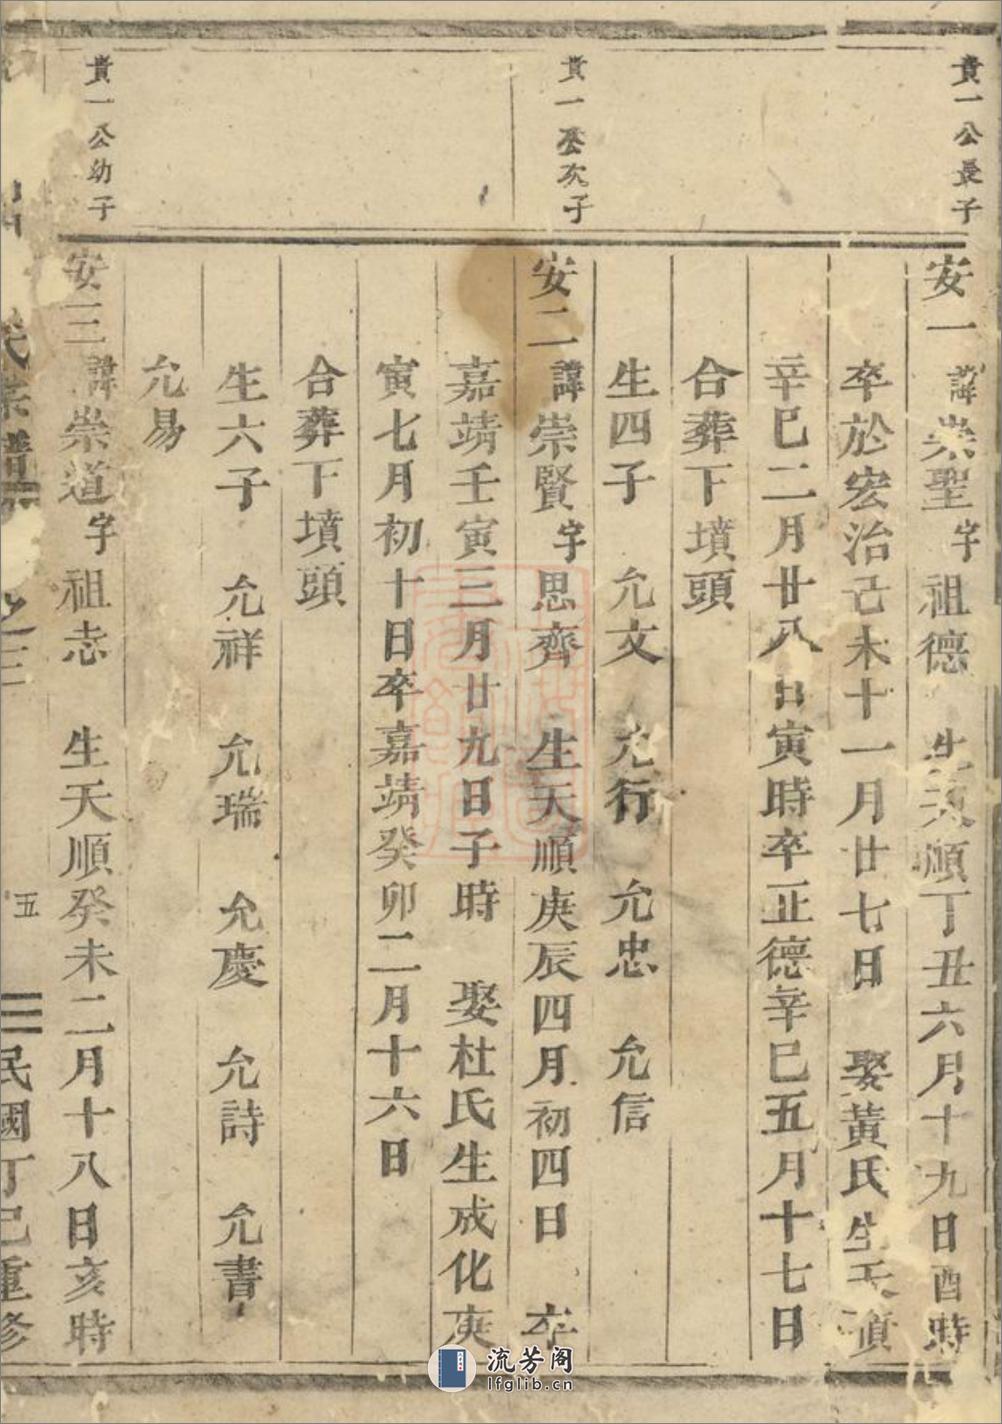 貴一公長子
安一 諱崇聖 字祖德 生天順丁丑六月十九日酉時
卒於宏治己未十一月廿七日 娶黃氏生天順
辛巳二月廿八日寅時卒正德辛巳五月十七日
合葬下墳頭
生四子 允文 允行 允忠 允信
貴一公次子
安二 諱崇賢 字思齊 生天順庚辰四月初四日 卒
嘉靖壬寅三月廿九日子時 娶杜氏生成化庚
寅七月初十日卒嘉靖癸卯二月十六日
合葬下墳頭
生六子 允祥 允瑞 允慶 允詩 允書
允易
貴一公幼子
安三 諱崇道 字祖志 生天順癸未二月十八日亥時
氏宗譜 之三 五 民國丁巳重修
流芳阁
lfglib.cn